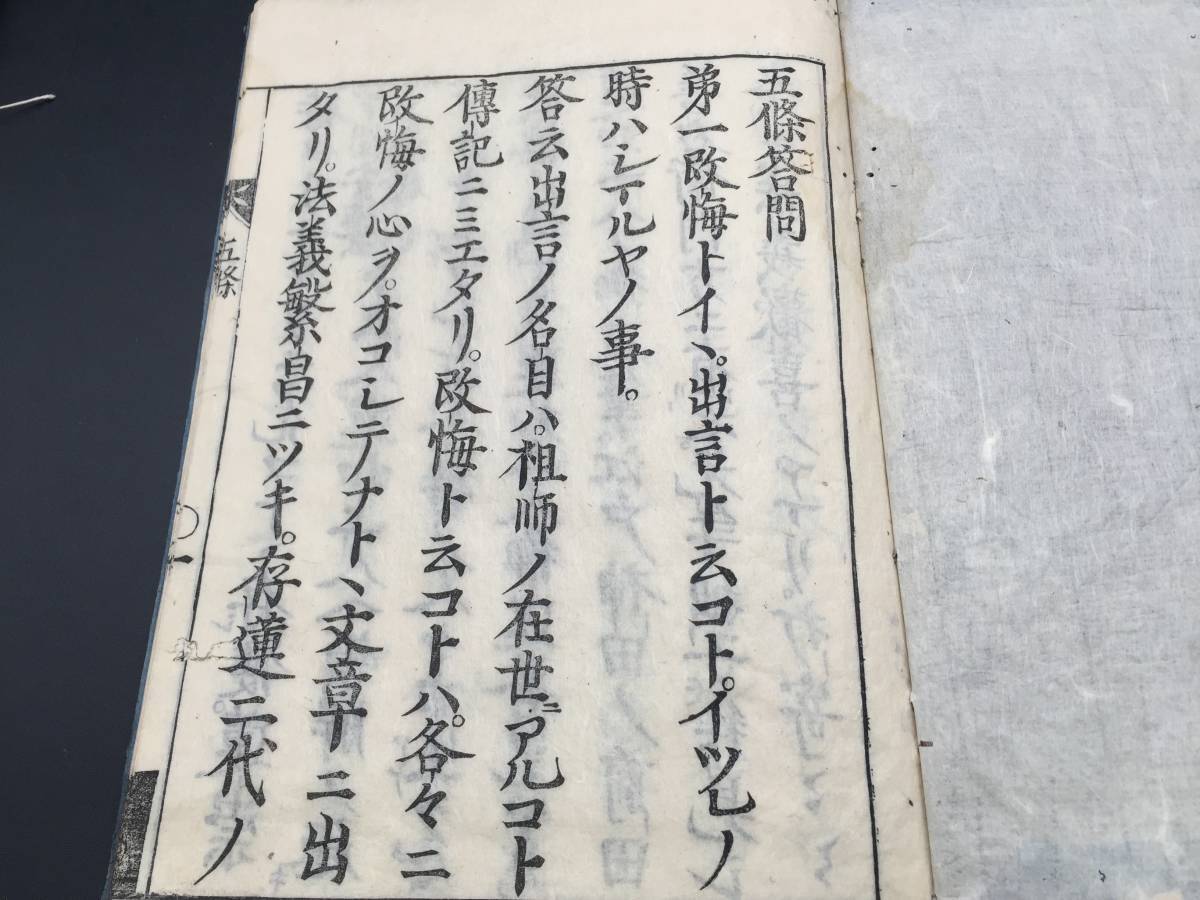 五條答問
第一改悔トイヽ。出言ト云コト。イツレノ
時ハシマルヤノ事。
答云出言ノ名目ハ。祖師ノ在世ニアルコト
傳記ニミエタリ。改悔ト云コトハ。各々ニ
改悔ノ心ヲ。オコシテノナトヽ文章ニ出
タリ。法義繁昌ニツキ。存蓮二代ノ
五條
一